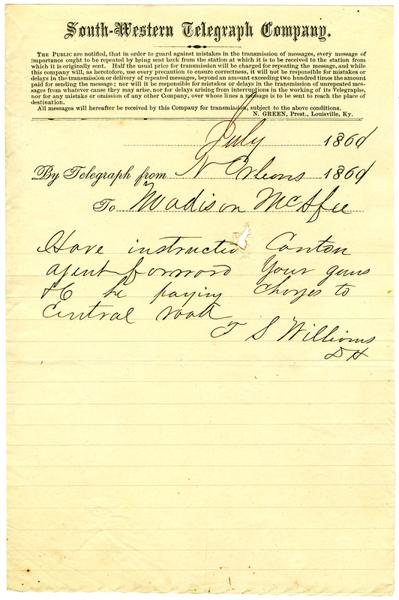 South-Western Telegraph Company.
THE PUBLIC are notified, that in order to guard against mistakes in the transmission of messages, every message of
importance ought to be repeated by being sent back from the station at which it is to be received to the station from
which it is originally sent. Half the usual price for transmission will be charged for repeating the message, and while
this company will, as heretofore, use every precaution to ensure correctness, it will not be responsible for mistakes or
delays in the transmission or delivery of repeated messages, beyond an amount exceeding two hundred times the amount
paid for sending the message; nor will it be responsible for mistakes or delays in the transmission of unrepeated mes-
sages from whatever cause they may arise, nor for delays arising from interruptions in the working of its Telegraphs,
nor for any mistake or omission of any other Company, over whose lines a message is to be sent to reach the place of
destination.
All messages will hereafter be received by this Company for transmission, subject to the above conditions.
N. GREEN, Prest., Louisville, Ky.
July 1860
By Telegraph from N Orleans 1860
To Madison McAfee
Have instructed Canton
agent forward Your guns
&C he paying charges to
Central road
T S Williams
DH